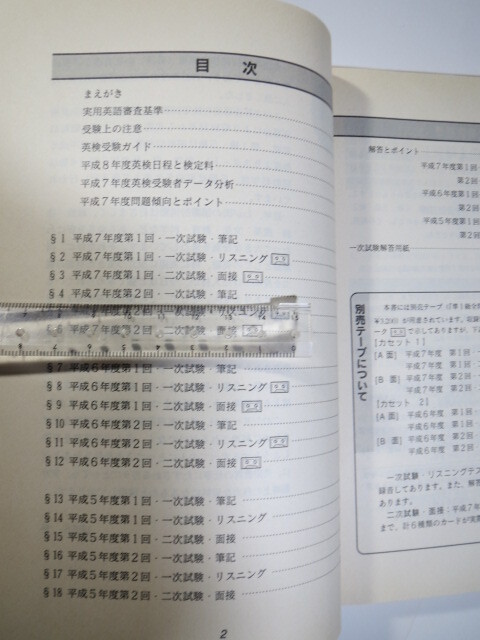 目 次
まえがき
実用英語審査基準
受験上の注意
英検受験ガイド
平成8年度英検日程と検定料
平成7年度英検受験者データ分析
平成7年度問題傾向とポイント
§1 平成7年度第1回・一次試験・筆記
§2 平成7年度第1回・一次試験・リスニング
§3 平成7年度第1回・二次試験・面接
§4 平成7年度第2回・一次試験・筆記
§6 平成7年度第2回・二次試験・面接
§7 平成6年度第1回・一次試験・筆記
§8 平成6年度第1回・一次試験・リスニング
§9 平成6年度第1回・二次試験・面接
§10 平成6年度第2回・一次試験・筆記
§11 平成6年度第2回・一次試験・リスニング
§12 平成6年度第2回・二次試験・面接
§13 平成5年度第1回・一次試験・筆記
§14 平成5年度第1回・一次試験・リスニング
§15 平成5年度第1回・二次試験・面接
§16 平成5年度第2回・一次試験・筆記
§17 平成5年度第2回・一次試験・リスニング
§18 平成5年度第2回・二次試験・面接
2
解答とポイント
平成7年度第1回
第2回
平成6年度第1回
第2回
平成5年度第1回
第2回
一次試験解答用紙
別売テープについて
本書には別売テープ
[カセット 1]
[A 面] 平成7年度 第1回
平成7年度 第1回
[B 面] 平成7年度 第2回
平成7年度 第2回
[カセット 2]
[A 面] 平成6年度 第1回
平成6年度 第1回
[B 面] 平成6年度 第2回
平成6年度 第2回
一次試験・リスニングテス
録音してあります。また、解答
あります。
二次試験・面接:平成7年
まで、計6種類のカードが実際